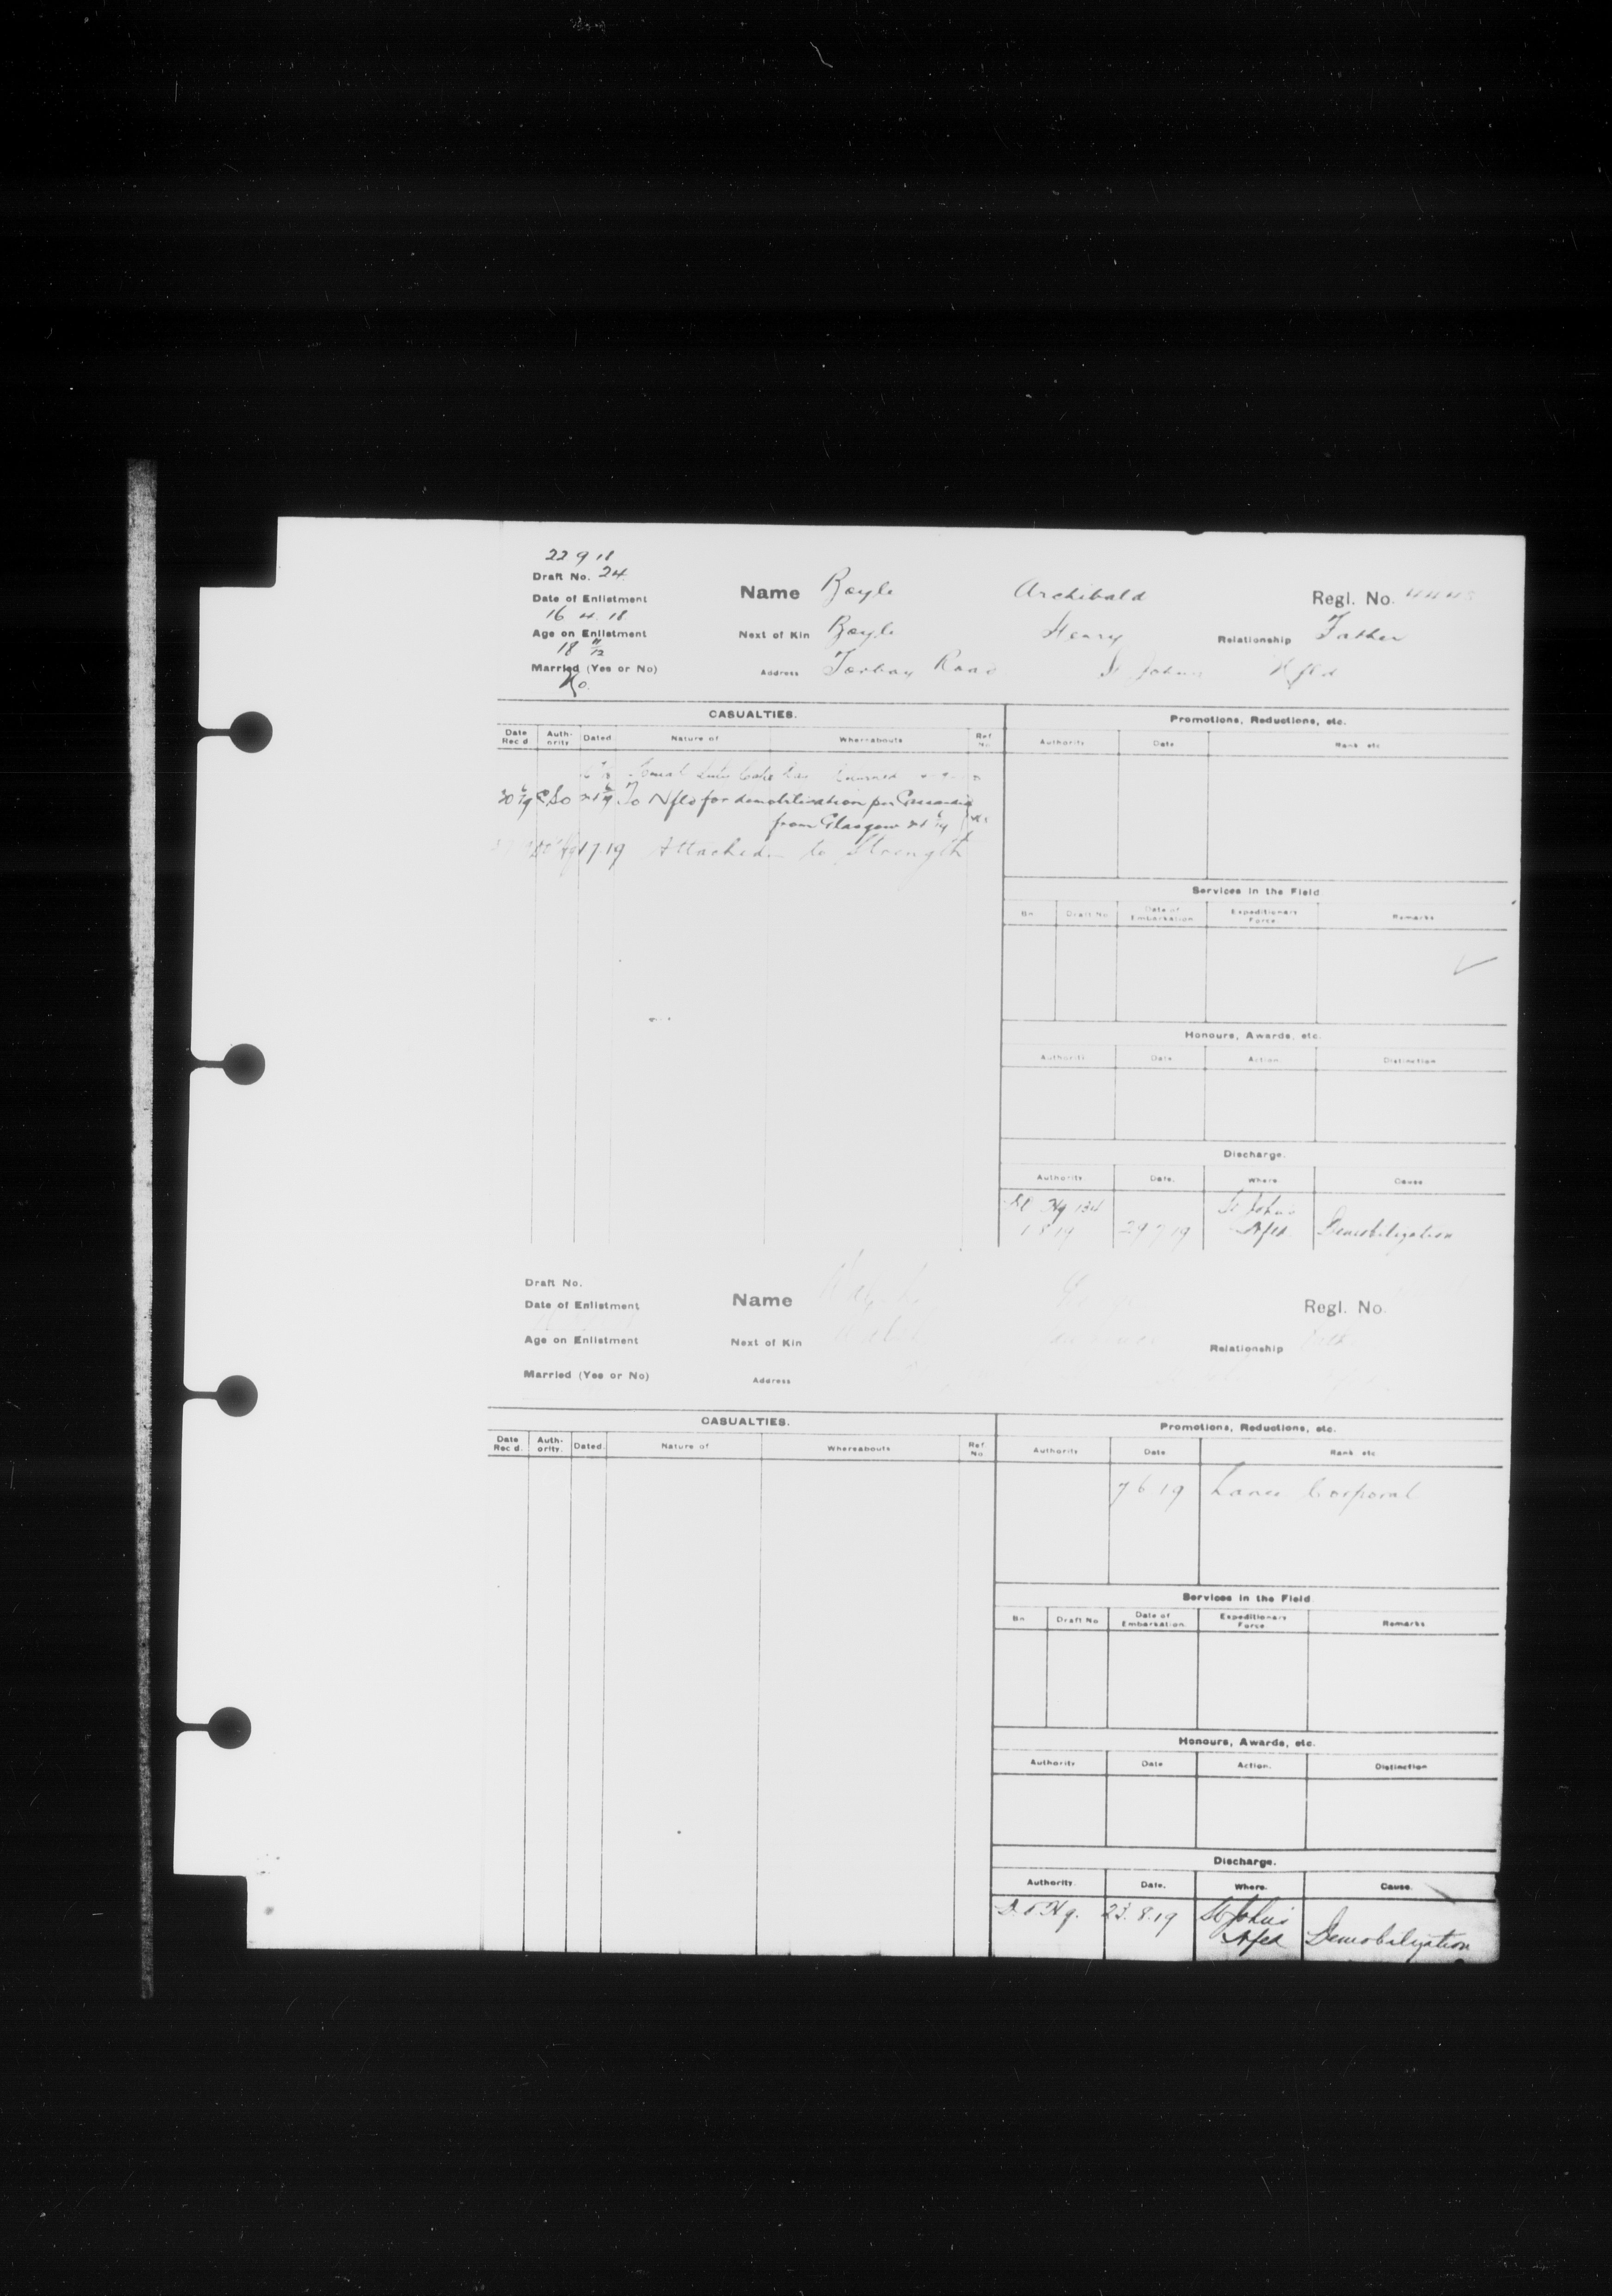 22 9 18
Draft No. 24
Date of Enlistment
16 4 18
Age on Enlistment
18 11/12
Married (Yes or No)
No.
Name Boyle Archibald Regl. No.
Next of Kin Boyle Henry Relationship Father
Address Torbay Road St Johns Nfld
CASUALTIES.
Date Rec'd Auth-ority Dated Nature of Whereabouts Ref No.
30 6/19 21 6/19 To Nfld for demobilization per Cassandra
from Glasgow 21 6/19
1 7 19 Attached to Strength
Promotions, Reductions, etc.
Authority Date Rank etc
Services in the Field
Bn Draft No Date of Embarkation Expeditionary Force Remarks
Honours, Awards, etc.
Authority Date Action Distinction
Discharge.
Authority Date. Where Cause
134 St John's
1 8 19 29 7 19 Nfld. Demobilization
Draft No.
Date of Enlistment
Age on Enlistment
Married (Yes or No)
Name Regl. No.
Next of Kin Relationship
Address
CASUALTIES.
Date Rec'd. Auth-ority. Dated. Nature of Whereabouts Ref No.
Promotions, Reductions, etc.
Authority Date Rank etc
7 6 19 Lance Corporal
Services in the Field
Bn Draft No Date of Embarkation Expeditionary Force Remarks
Honours, Awards, etc.
Authority Date Action. Distinction
Discharge.
Authority. Date. Where. Cause.
23.8.19 St John's
Nfld Demobilization